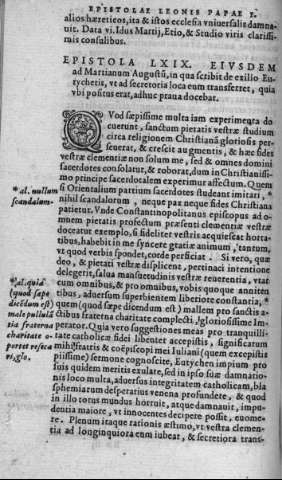 EPISTOLAE LEONIS PAPAE I.
alios hæreticos, ita & istos ecclesia vniuersalis damna-
uit. Data vi. Idus Martij, Etio, & Studio viris clarissi-
mis consulibus.
EPISTOLA LXIX. EIVSDEM
ad Martianum Augustū, in qua scribit de exilio Eu-
tychetis, vt ad secretoria loca eum transferret, quia
vbi positus erat, adhuc praua docebat.
QVod sæpissime multa iam experimenta do
cuerunt, sanctum pietatis vestræ studium
circa religionem Christianā gloriosius per
seuerat, & crescit augmentis, & hæc fides
vestræ clementiæ non solum me, sed & omnes domini
sacerdotes consolatur, & roborat, dum in Christianissi-
mo principe sacerdotalem experimur affectum. Quem
si Orientalium partium sacerdotes studeant imitari, *
nihil scandalorum, neque pax neque fides Christiana
patietur. Vnde Constantinopolitanus episcopus ad o-
mnem pietatis profectum præsenti clementiæ vestræ
doceatur exemplo, si fideliter vestris acquiescat horta-
tibus, habebit in me syncere gratiæ animum, tantum,
vt quod verbis spondet, corde perficiat. Si vero, quæ
deo, & pietati vestræ displicent, pertinaci intentione
delegerit, salua mansuetudinis vestræ reuerentia, vtar
cum omnibus, & pro omnibus, vobis quoque anniten
tibus, aduersum superbientem libertate constantia, *
quem (quod sæpe dicendum est) mallem pro sanctis a-
ctibus fraterna charitate complecti, gloriosissime Im-
perator. Quia vero suggestiones meas pro tranquilli-
tate catholicæ fidei libenter acceptistis, significatum
mihi fratris & coëpiscopi mei Iuliani (quem excepistis
piissime) sermone cognoscite, Eutychen impium pro
suis quidem meritis exulare, sed in ipso suæ damnatio-
nis loco multa, aduersus integritatem catholicam, bla
sphemiarum desperatius venena profundere, & quod
in illo totus mundus horruit, atque damnauit, impu-
dentia maiore, vt innocentes decipere possit, euome-
re. Plenum itaque rationis æstimo, vt vestra clemen-
tia ad longinquiora eum iubeat, & secretiora trans-
*al. nullum
scandalum-
*al. quid
(quod sæpe
dicēdum est)
male pullulā
tia fraterna
charitate o-
portet reseca
ri, glo.